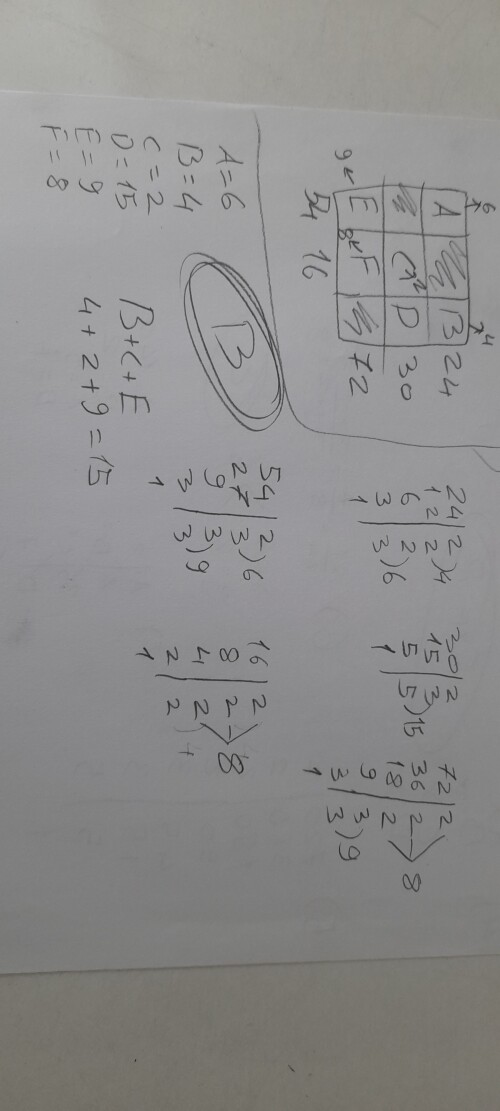 6 4
A B 24
C 2 D 30
E F 72
9 8
54 16
A=6
B=4
C=2
D=15
E=9
F=8
B
B+C+E
4+2+9=15
24 | 2
12 | 2 ) 4
6 | 2
3 | 3 ) 6
1
30 | 2
15 | 3
5 | 5 ) 15
1
72 | 2
36 | 2
18 | 2 8
9 | 3
3 | 3 ) 9
1
54 | 2
27 | 3 ) 6
9 | 3
3 | 3 ) 9
1
16 | 2
8 | 2 8
4 | 2
2 | 2
1